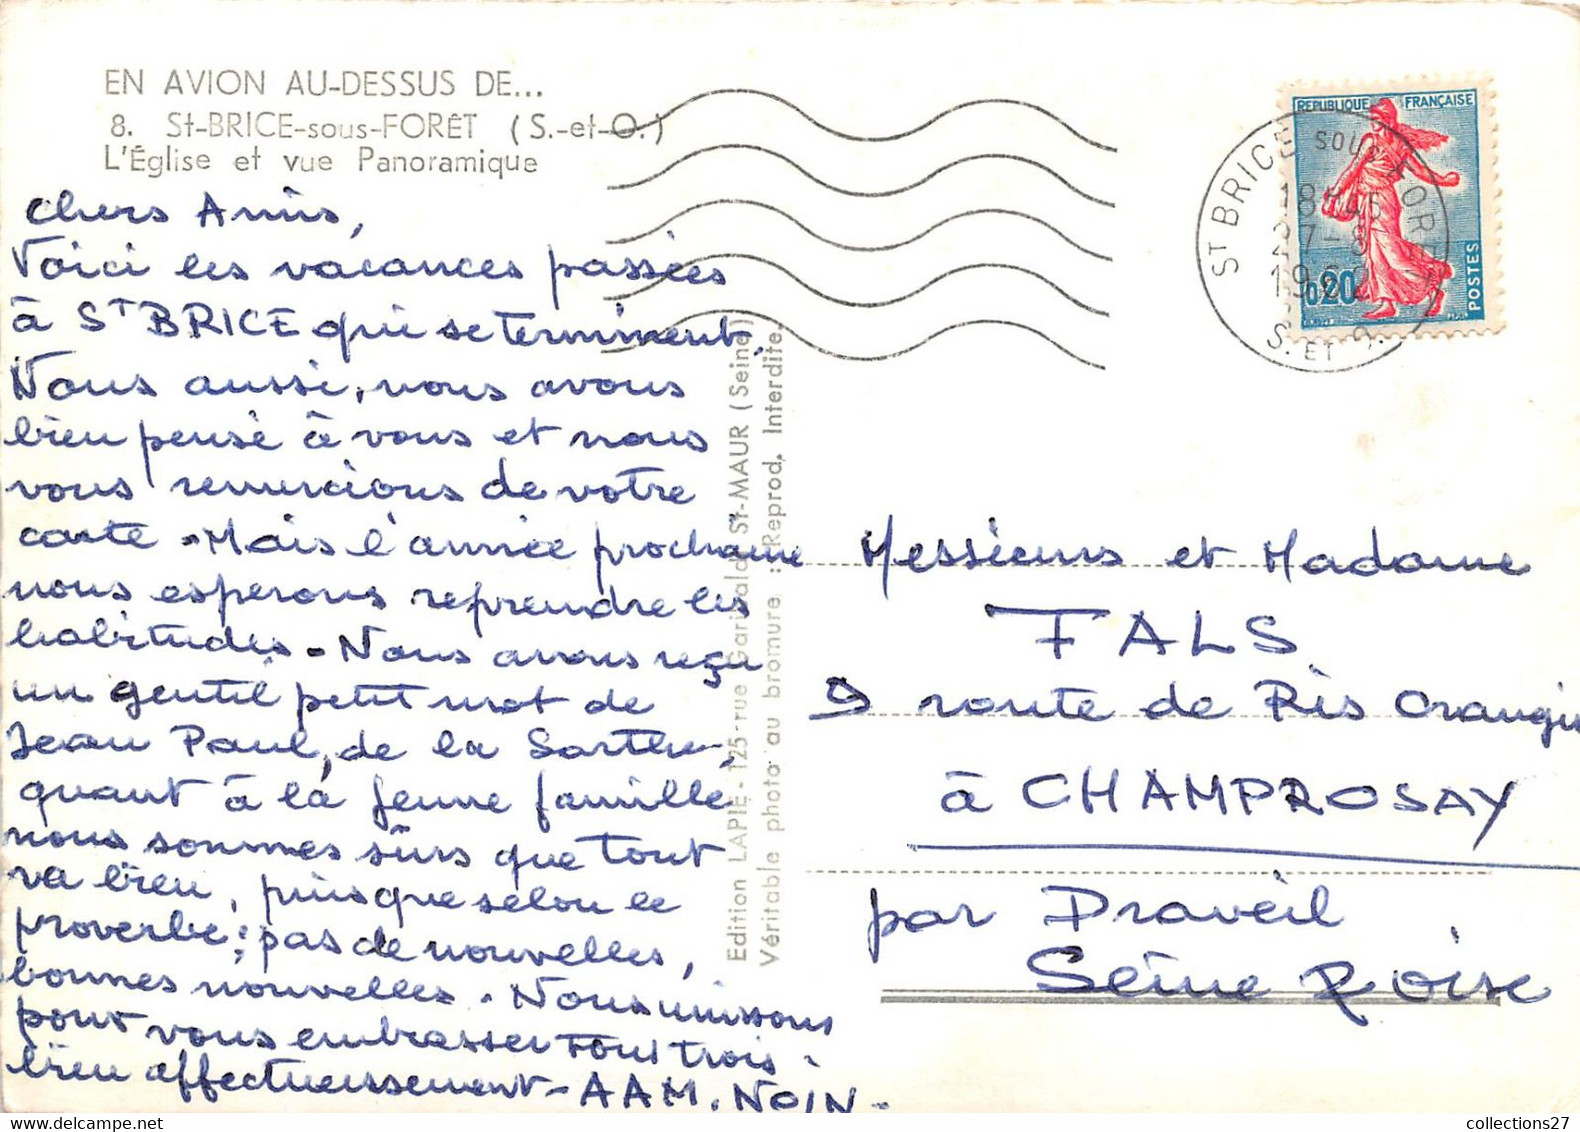 EN AVION AU-DESSUS DE...
8. St-BRICE-sous-FORÊT (S.-et-O.)
L'Église et vue Panoramique
Chers Amis,
Voici les vacances passées
à ST BRICE qui se terminent.
Nous aussi, nous avons
bien pensé à vous et nous
vous remercions de votre
carte - Mais l'année prochaine
nous esperons reprendre les
habitudes - Nous avons reçu
un gentil petit mot de
Jean Paul, de la Sarthe,
quant à la jeune famille
nous sommes sûrs que tout
va bien, puisque selon le
proverbe : pas de nouvelles,
bonnes nouvelles. Nous unissons
pour vous embrasser tous trois
bien affectueusement - AAM. NOIN -
Edition LAPIE - 125 rue Garibaldi St-MAUR (Seine)
Véritable photo au bromure : Reprod. Interdite.
REPUBLIQUE FRANÇAISE
0,20
POSTES
ST BRICE SOUS FORET
18H45
27-8
1962
S. ET O.
Messieurs et Madame
FALS
9 route de Ris Orangis
à CHAMPROSAY
par Draveil
Seine & Oise
collections27